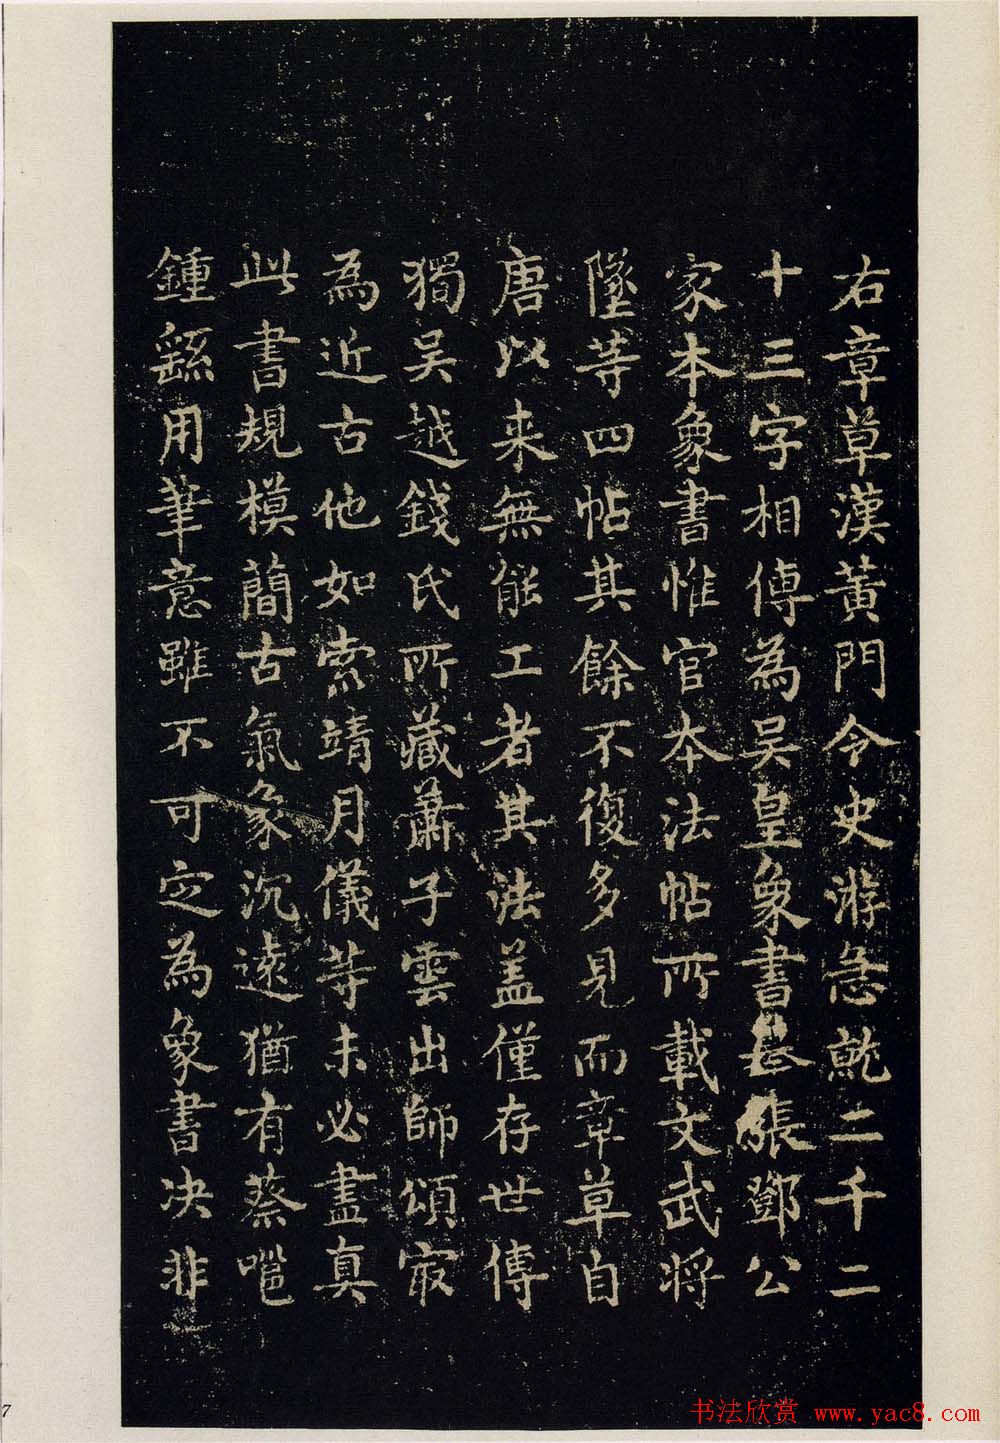 右章草漢黃門令史游急就二千二
十三字相傳為吳皇象書張鄧公
家本象書惟官本法帖所載文武將
墜等四帖其餘不復多見而章草自
唐以来無能工者其法盖僅存世傳
獨吳越錢氏所藏蕭子雲出師頌㝡
為近古他如索靖月儀等未必盡真
此書規模簡古氣象沉遠猶有蔡邕
鍾繇用筆意雖不可定為象書决非
7
书法欣赏 www.yac8.com